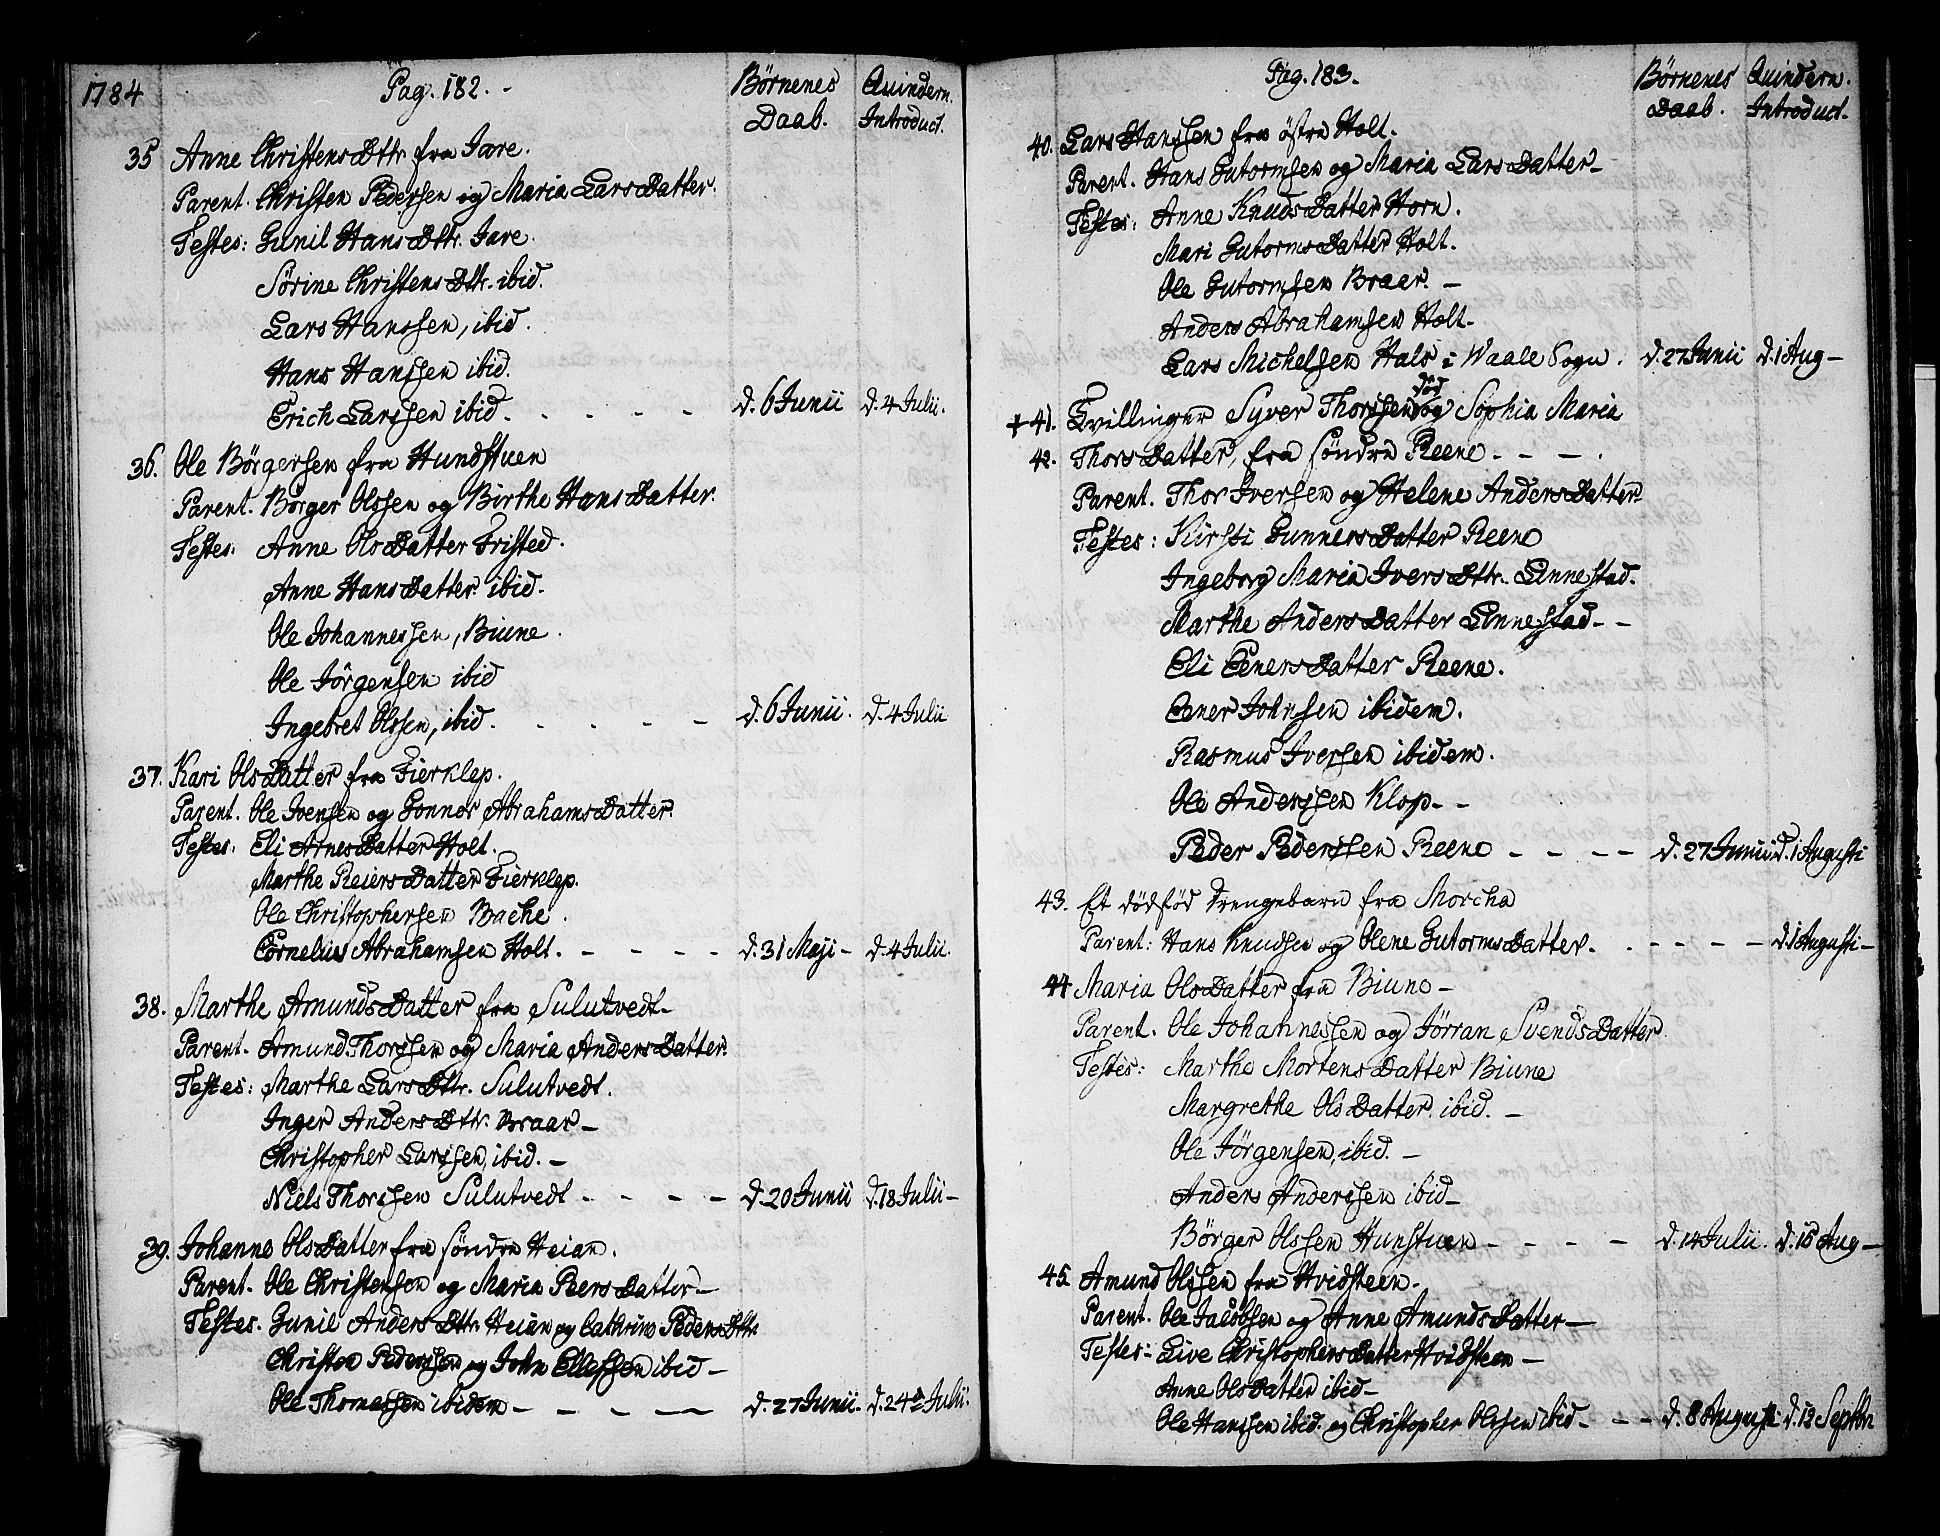 1784
Pag. 182. -
Börnenes Daab.
Quindern. Introduct.
35 Anne Christens Dttr fra Jare.
Parent. Christen Pedersen og Maria Lars Datter.
Testes: Gunil Hans Dttr. Jare.
Sörine Christens Dttr. ibid.
Lars Hanssen, ibid.
Hans Hanssen ibid.
Erich Larssen ibid. - - - - - d. 6 Junii d. 4 Julii.
36. Ole Börgersen fra Hundstuen
Parent. Börger Olssen og Birthe Hans Datter.
Testes: Anne Ols Datter Fristed.
Anne Hans Datter ibid.
Ole Johannessen, Biune.
Ole Jörgensen ibid
Ingebret Olssen, ibid. - - - - - d. 6 Junii. d. 4 Julii
37. Kari Ols Datter fra Fierklep.
Parent. Ole Ivensen og Gonnor Abrahams Datter.
Testes. Eli Arnes Datter Holt.
Marthe Reiers Datter Fierklep.
Ole Christophersen Bache.
Cornelius Abrahamsen Holt. - - - - d. 31 Maji - d. 4 Julii.
38. Marthe Amunds Datter fra Sulutvedt -
Parent. Amund Thorssen og Maria Anders Datter.
Testes: Marthe Lars Dttr. Sulutvedt.
Inger Anders Dttr. Braar -
Christopher Larssen, ibid. -
Niels Thorssen Sulutvedt - - - - d. 20 Junii d. 18 Julii -
39. Johanne Ols Datter fra söndre Heian.
Parent. Ole Christensen og Maria Peers Datter -
Testes. Gunil Anders Dttr. Heian og Cathrine Peders Dttr.
Christen Pederssen og John Ellefsen ibid -
Ole Thomessen ibidem - - - - d. 27 Junii. d. 24de Julii.
Pag. 183.
Börnenes Daab.
Quindern. Introduct.
40. Lars Hanssen fra östre Holt.
Parent. Hans Gutormsen og Maria Lars Datter -
Testes: Anne Knuds Datter Horn.
Mari Gutorms Datter Holt.
Ole Gutormsen Braar. -
Anders Abrahamsen Holt.
Lars Michelsen Hals i Waale Sogn. d. 27 Junii d. 1 Aug -
död
+ 41. Tvillinger Syver Thorssen og Sophia Maria
42. Thors Datter, fra söndre Reene - - - .
Parent. Thor Iversen og Helene Anders Datter
Testes: Kirsti Gunners Datter Reene
Ingeborg Maria Ivers Dttr. Linnestad.
Marthe Anders Datter Linnestad - -
Eli Eeners Datter Reene.
Eener Johnsen ibidem.
Rasmus Iverssen ibidem.
Ole Anderssen Klop - -
Peder Pederssen Reene - - - - d. 27 Junii d. 1 Augusti
43. Et dödföd Drengebarn fra Morcha
Parent: Hans Knudsen og Olene Gutorms Datter. - - - - - d. 1 Augusti -
44 Maria Ols Datter fra Biune -
Parent. Ole Johannessen og Jörran Svends Datter
Testes: Marthe Mortens Datter Biune
Margrethe Ols Datter ibid. -
Ole Jörgensen, ibid. -
Anders Anderssen ibid -
Börger Olssen Hunstuen - - - - d. 14 Julii. d. 15 Aug -
45. Amund Olssen fra Hvidsteen -
Parent. Ole Jacobsen og Anne Amunds Datter -
Testes: Live Christophers Datter Hvidsteen -
Anne Ols Datter ibid -
Ole Hanssen ibid. og Christopher Olssen ibid - - - d. 8 Augusti d. 12 Septbr